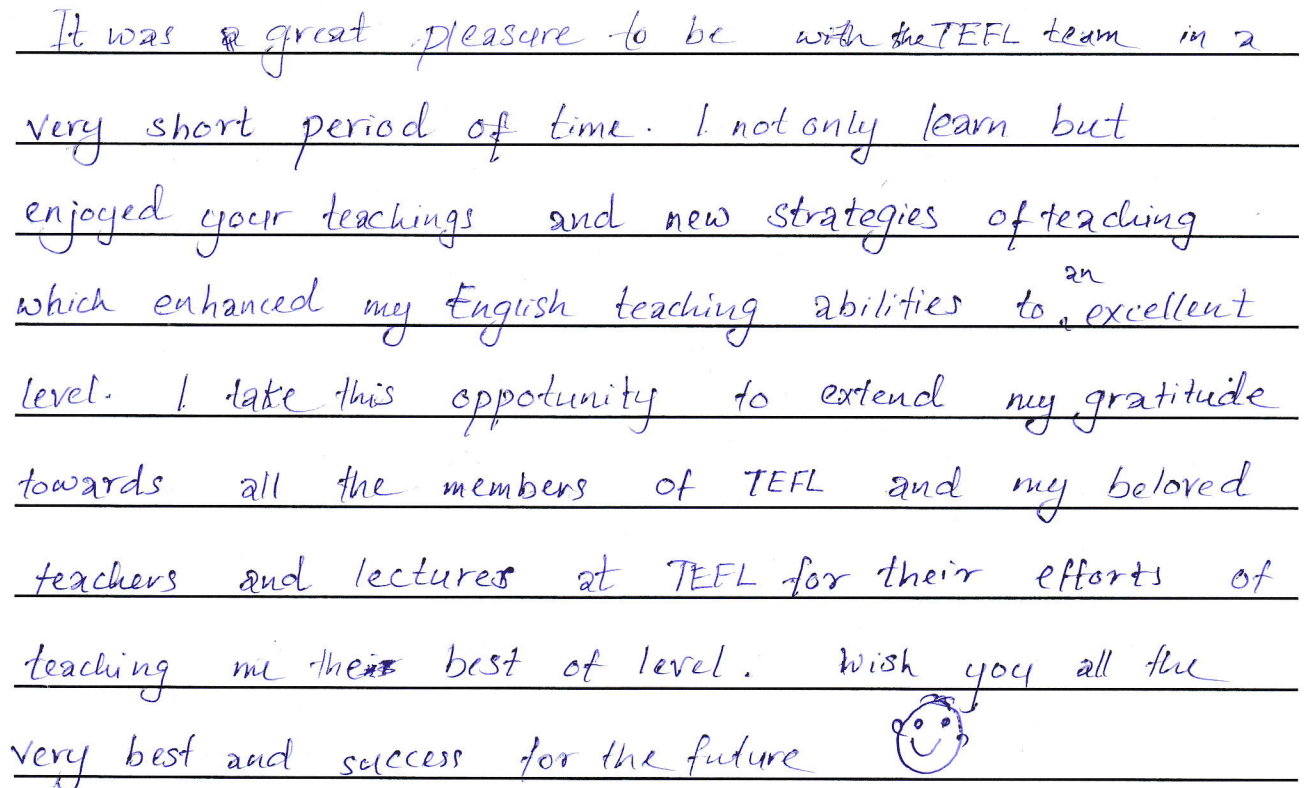 It was a great pleasure to be with the TEFL team in a
very short period of time. I not only learn but
enjoyed your teachings and new strategies of teaching
which enhanced my English teaching abilities to an excellent
level. I take this oppotunity to extend my gratitude
towards all the members of TEFL and my beloved
teachers and lectures at TEFL for their efforts of
teaching me their best of level. Wish you all the
very best and success for the future